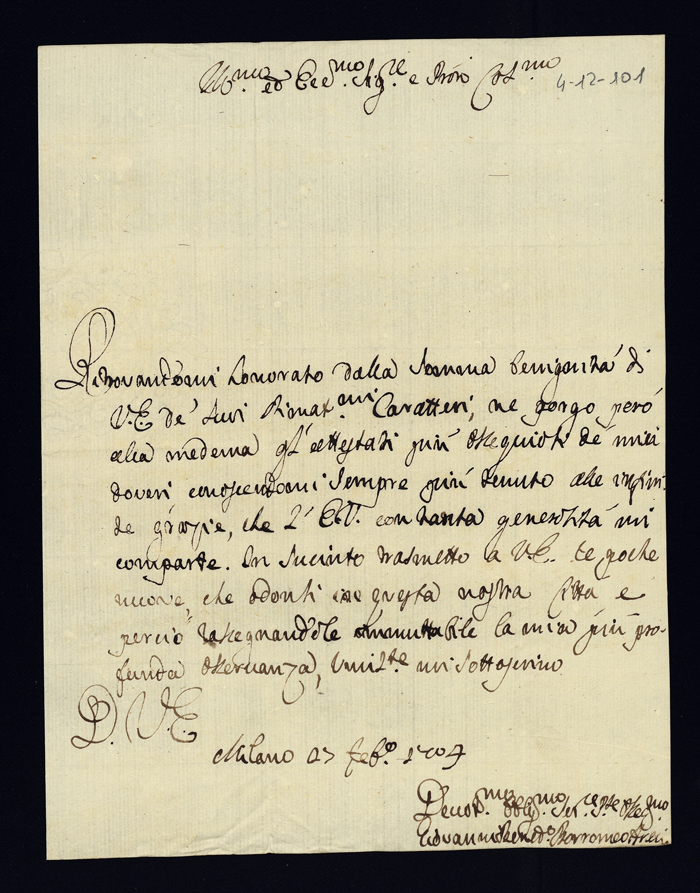 Ill.mo ed Ecc.mo Sig.re e Pron Col.mo
4-12-101
Ritrovandomi honorato dalla somma benignità di
V.E. de' suoi stimat.mi Caratteri, ne porgo però
alla medema gl'attestati più ossequiosi de miei
doveri conoscendomi sempre più tenuto alle
de grazie, che L'E.V. con tanta generosità mi
comparte. In sucinto trasmetto a V.E. le poche
nuove, che odonsi in questa nostra Città e
perciò rasegnandole immuttabile la mia più pro-
funda osservanza, Umil.te mi sottoscrivo
D. V.E.
Milano 27 Feb.o 1704
Devot.mo Obblig.mo Ser.re Osseq.mo
Giovanni Bened.o Borromeo Arese